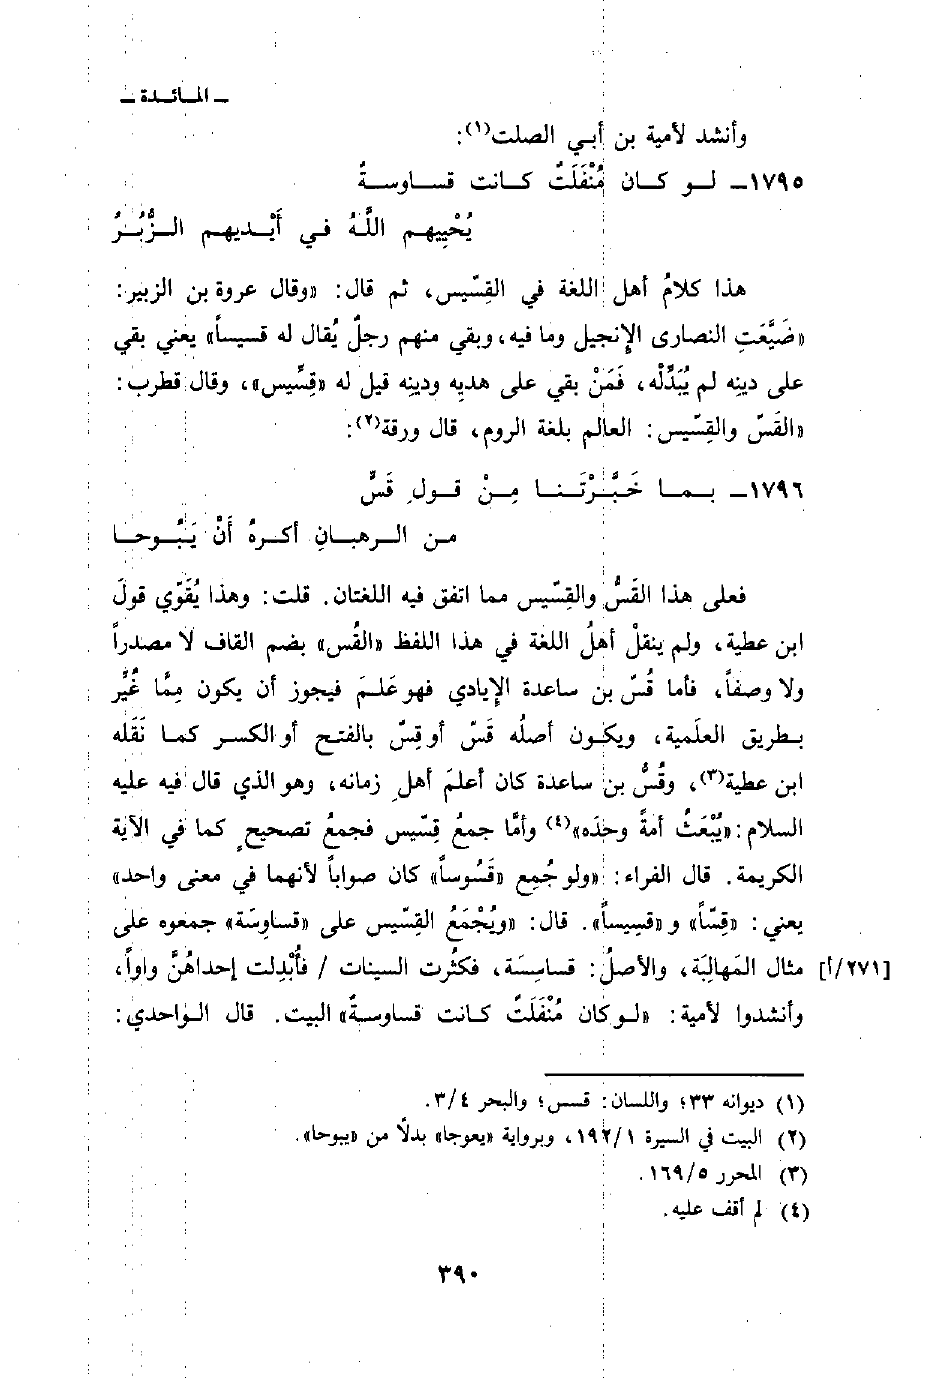 ـ المائدة ـ
وأنشد لأمية بن أبي الصلت(١):
١٧٩٥ـ لو كان مُنْفَلَتٌ كانت قساوسةٌ
يُحْيِيهم اللَّهُ في أَيْديهم الزُّبُرُ
هذا كلامُ أهل اللغة في القِسّيس، ثم قال: «وقال عروة بن الزبير:
«ضَيَّعَتِ النصارى الإنجيل وما فيه، وبقي منهم رجلٌ يُقال له قسيساً» يعني بقي
على دينه لم يُبَدِّلْه، فَمَنْ بقي على هديِه ودينِه قيل له «قِسِّيس»، وقال قطرب:
«القَسّ والقِسّيس: العالم بلغة الروم، قال ورقة(٢):
١٧٩٦ـ بما خَبَّرْتَنا مِنْ قولِ قَسٍّ
من الرهبانِ أكرهُ أَنْ يَبُوحا
فعلى هذا القَسُّ والقِسّيس مما اتفق فيه اللغتان. قلت: وهذا يُقَوّي قولَ
ابن عطية، ولم ينقلْ أهلُ اللغة في هذا اللفظ «القُس» بضم القاف لا مصدراً
ولا وصفاً، فأما قُسّ بن ساعدة الإيادي فهو عَلَمَ فيجوز أن يكون مِمَّا غُيِّر
بطريق العلَمية، ويكون أصلُه قَسّ أو قِسّ بالفتح أو الكسر كما نَقَله
ابن عطية(٣)، وقُسُّ بن ساعدة كان أعلمَ أهلِ زمانه، وهو الذي قال فيه عليه
السلام: «يُبْعَثُ أمةً وحدَه»(٤) وأمَّا جمعُ قِسّيس فجمعُ تصحيحٍ كما في الآية
الكريمة. قال الفراء: «ولو جُمِع «قَسُوساً» كان صواباً لأنهما في معنى واحد»
يعني: «قِسّاً» و «قسِيساً». قال: «ويُجْمَعُ القِسّيس على «قساوِسَة» جمعوه على
[٢٧١/أ] مثال المَهالِبَة، والأصلُ: قساسِسَة، فكثُرت السينات / فأُبْدِلت إحداهُنَّ واواً،
وأنشدوا لأمية: «لو كان مُنْفَلَتٌ كانت قساوسةٌ» البيت. قال الواحدي:
(١) ديوانه ٣٣؛ واللسان: قسس؛ والبحر ٣/٤.
(٢) البيت في السيرة ١٩٢/١، وبرواية «يعوجا» بدلاً من «يبوحا».
(٣) المحرر ١٦٩/٥.
(٤) لم أقف عليه.
٣٩٠